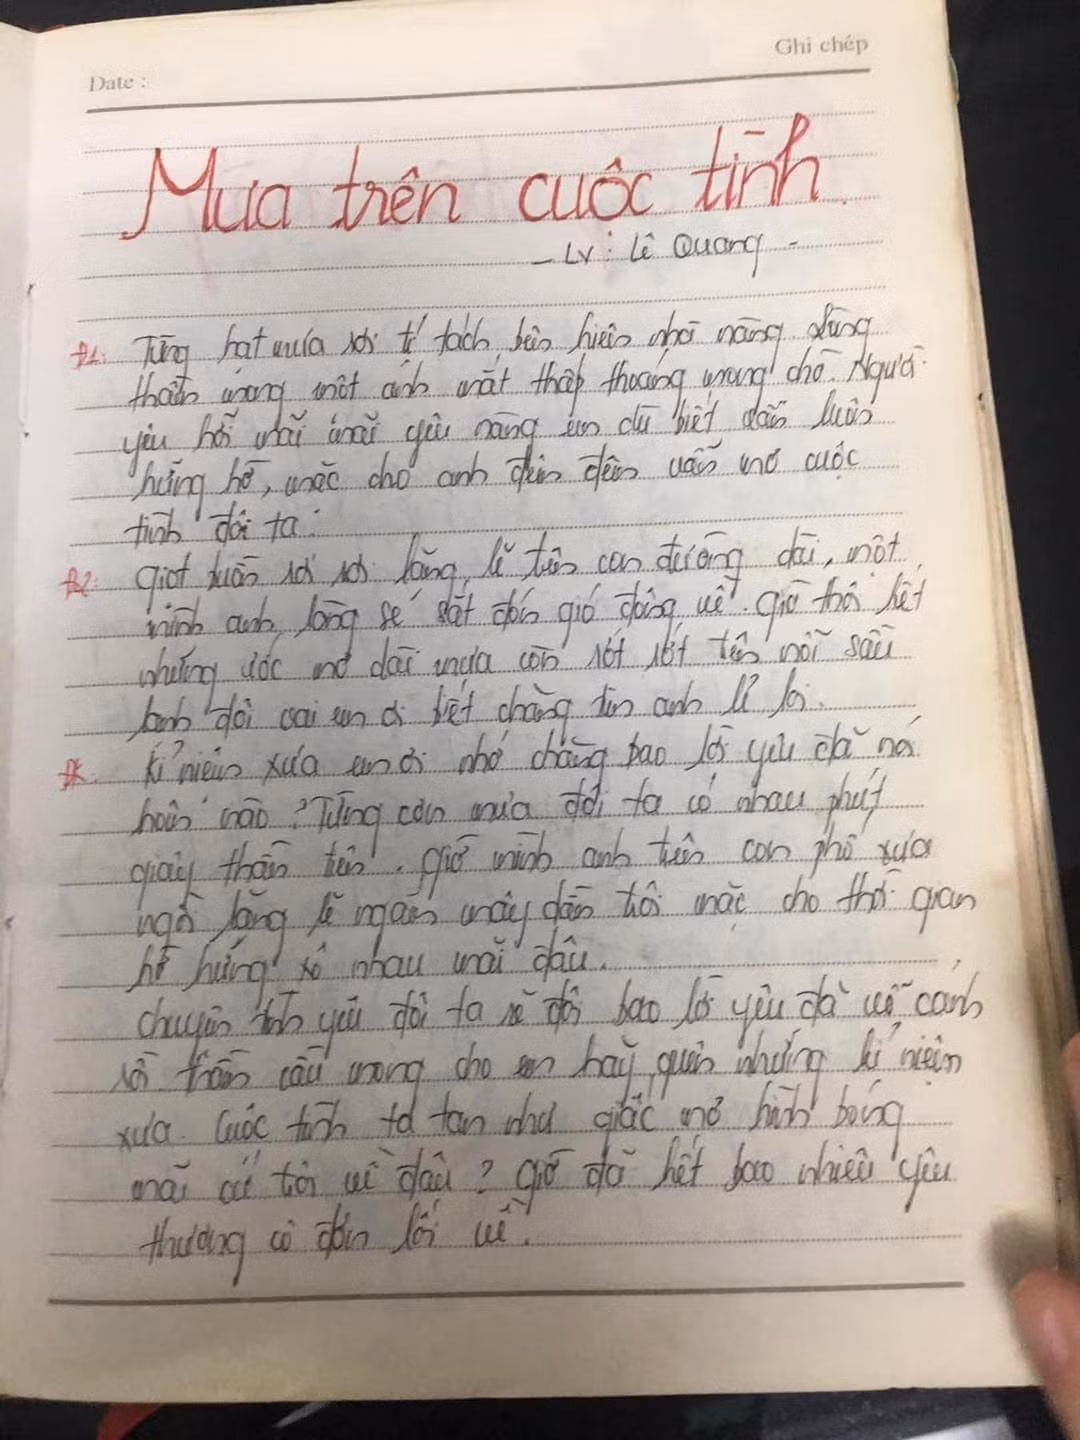 Ghi chép
Date :
Mưa trên cuộc tình
- LV : Lê Quang -
Đ1: Từng hạt mưa rơi tí tách bên hiên nhớ nàng. Lòng
thầm mong một ánh mắt thấp thoáng mong chờ. Người
yêu hỡi mãi mãi yêu nàng em dù biết vẫn luôn
hững hờ, mặc cho anh đêm đêm vẫn mơ cuộc
tình đôi ta.
Đ2: Giọt buồn rơi rơi lặng lẽ trên con đường dài, một
mình anh, lòng se sắt đón gió đông về. Giờ thôi hết
những ước mơ dài mưa còn rớt rớt trên nỗi sầu
tình đôi vai em ơi biết chăng tim anh lẻ loi.
ĐK: Kỉ niệm xưa em ơi nhớ chăng bao lời yêu đã nói
hôm nào? Từng cơn mưa đôi ta có nhau phút
giây thần tiên. Giờ mình anh trên con phố xưa
ngồi lặng lẽ ngắm mây dần trôi mặc cho thời gian
hờ hững xô nhau mãi đâu.
Chuyện tình yêu đôi ta rẽ đôi bao lời yêu đã vỗ cánh
rồi thầm cầu mong cho em hãy quên những kỉ niệm
xưa. Cuộc tình ta tan như giấc mơ hình bóng
mãi cứ trôi về đâu? Giờ đã hết bao nhiêu yêu
thương cô đơn lối về.